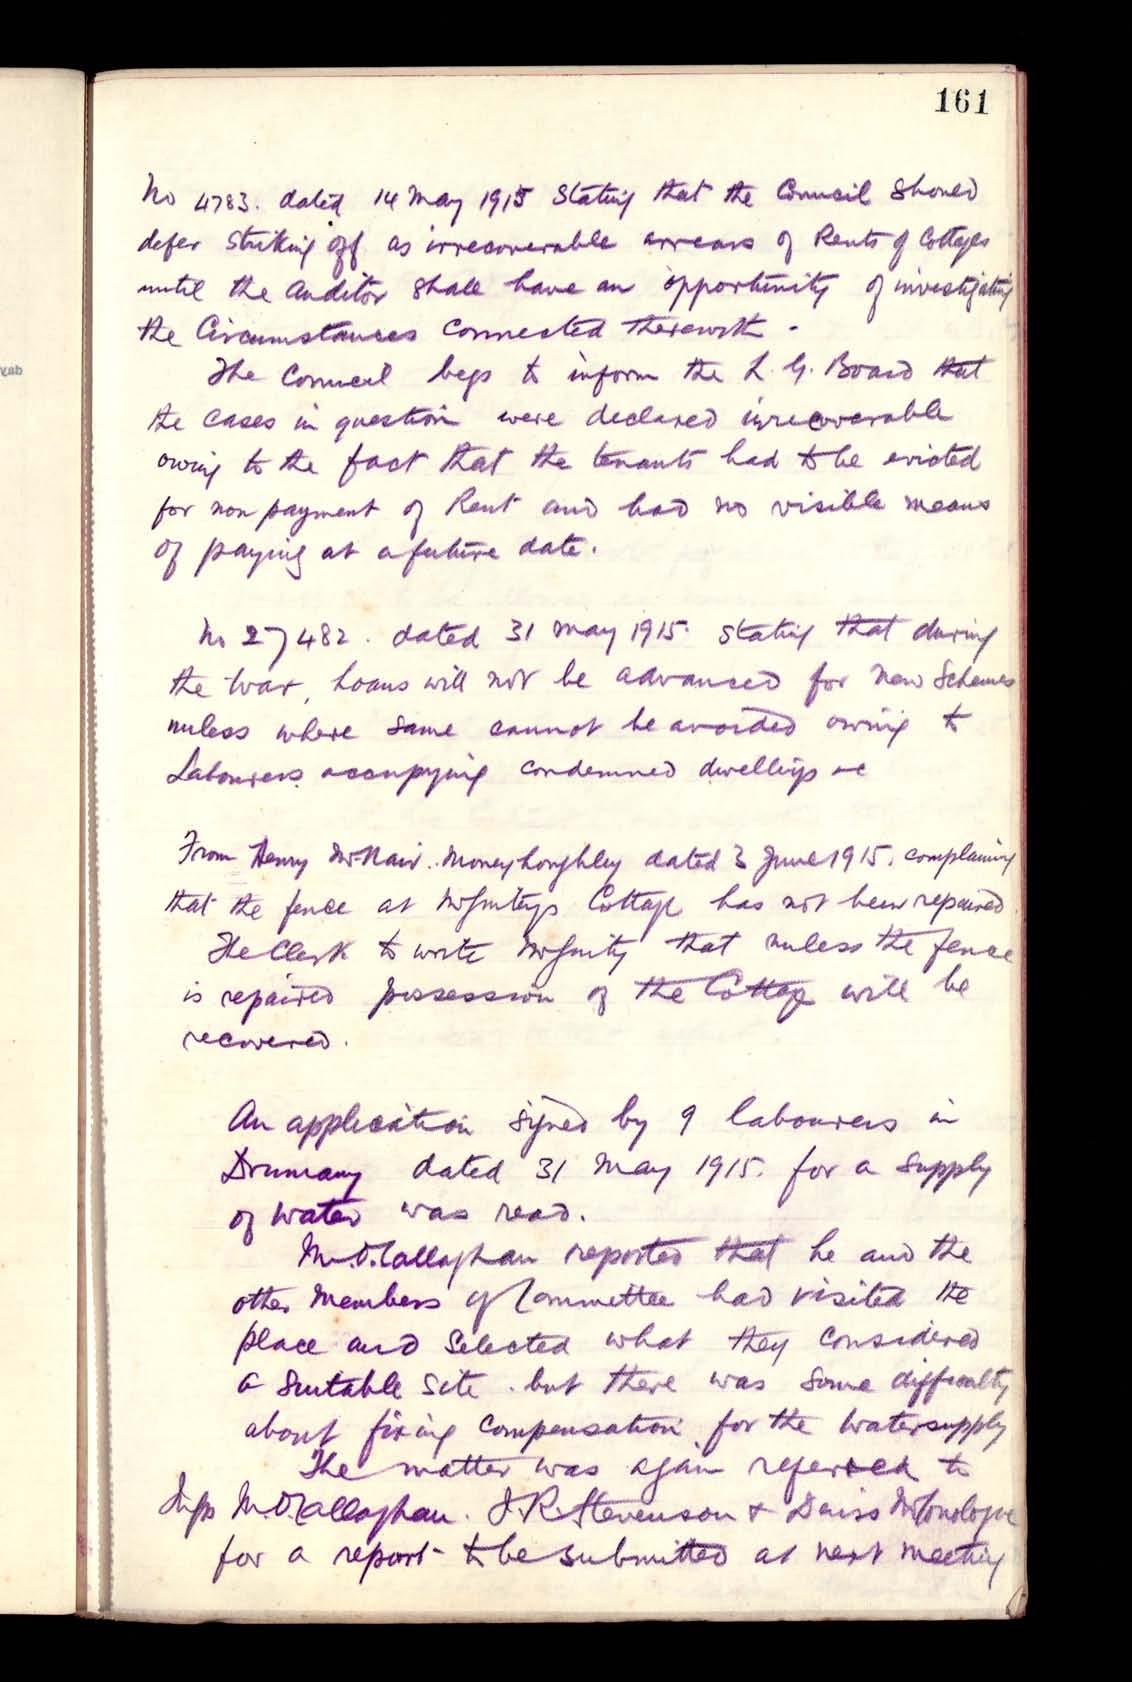 161
No 4783. dated 14 May 1915 Stating that the Council should
defer striking off as irrecoverable arrears of Rents of Cottages
until the Auditor shall have an opportunity of investigating
the Circumstances connected therewith -
The Council begs to inform the L. G. Board that
the cases in question were declared irrecoverable
owing to the fact that the tenants had to be evicted
for non payment of Rent and had no visible means
of paying at a future date.
No 27482. dated 31 May 1915. Stating that during
the War, Loans will not be advanced for new Schemes
unless where same cannot be avoided owing to
Labourers occupying condemned dwellings &c
From Henry McNair. Moneyhoughley dated 3 June 1915. complaining
that the fence at McGinty's Cottage has not been repaired
The Clerk to write McGinty that unless the fence
is repaired possession of the Cottage will be
recovered.
An application signed by 9 labourers in
Drumany dated 31 May 1915. for a supply
of water was read.
Mr. O'Callaghan reported that he and the
other Members of Committee had visited the
place and Selected what they considered
a suitable site. but there was some difficulty
about fixing compensation for the Watersupply
The matter was again referred to
M. O'Callaghan. J. R. Stevenson &
for a report to be submitted at next meeting